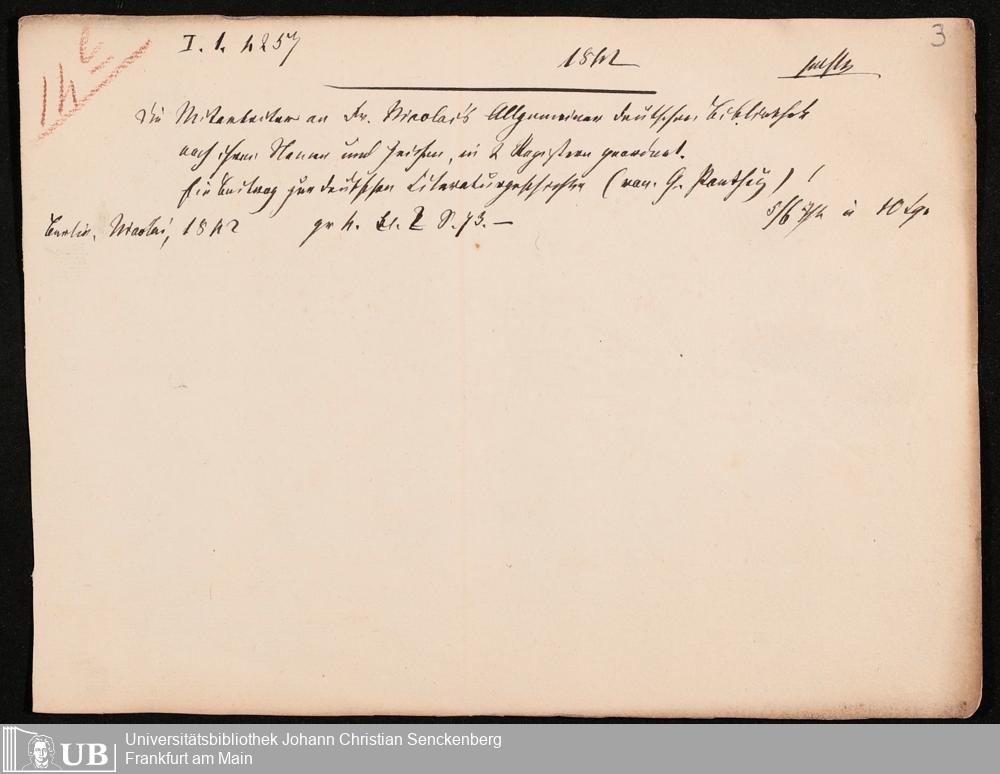 3
I. 1. 4257
1842
14
Die Mitarbeiter an Fr. Nicolai's Allgemeiner deutschen Bibliothek
nach ihren Namen und Zeichen, in 2 Registern geordnet.
Ein Beitrag zur deutschen Literaturgeschichte (von G. Parthey) !
Berlin, Nicolai, 1842 gr 4. S. 73. —
5/6 à 10 Sgr
UB
Universitätsbibliothek Johann Christian Senckenberg
Frankfurt am Main